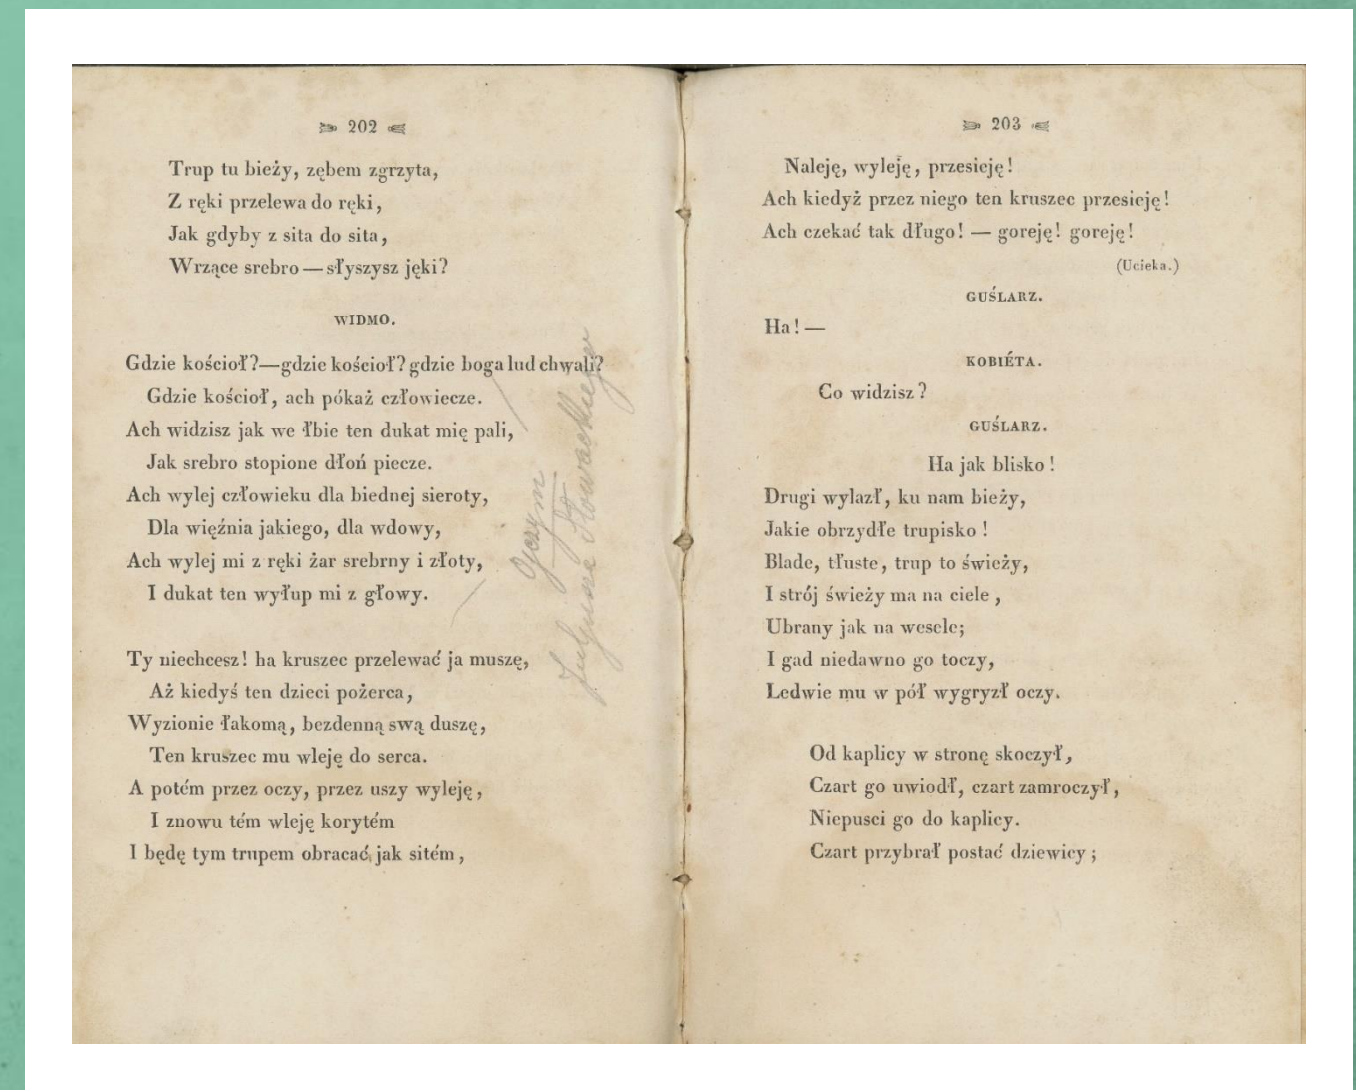 202
Trup tu bieży, zębem zgrzyta,
Z ręki przelewa do ręki,
Jak gdyby z sita do sita,
Wrzące srebro — słyszysz jęki?
WIDMO.
Gdzie kościoł?—gdzie kościoł? gdzie boga lud chwali?
Gdzie kościoł, ach pókaż człowiecze.
Ach widzisz jak we łbie ten dukat mię pali,
Jak srebro stopione dłoń piecze.
Ach wylej człowieku dla biednej sieroty,
Dla więźnia jakiego, dla wdowy,
Ach wylej mi z ręki żar srebrny i złoty,
I dukat ten wyłup mi z głowy.
Ty niechcesz! ha kruszec przelewać ja muszę,
Aż kiedyś ten dzieci pożerca,
Wyzionie łakomą, bezdenną swą duszę,
Ten kruszec mu wleję do serca.
A potém przez oczy, przez uszy wyleję,
I znowu tém wleję korytém
I będę tym trupem obracać jak sitém,
Ojczym
to
Juljusza Słowackiego
203
Naleję, wyleję, przesieję!
Ach kiedyż przez niego ten kruszec przesieję!
Ach czekać tak długo! — goreję! goreję!
(Ucieka.)
GUŚLARZ.
Ha! —
KOBIÉTA.
Co widzisz?
GUŚLARZ.
Ha jak blisko!
Drugi wylazł, ku nam bieży,
Jakie obrzydłe trupisko!
Blade, tłuste, trup to świeży,
I strój świeży ma na ciele,
Ubrany jak na wesele;
I gad niedawno go toczy,
Ledwie mu w pół wygryzł oczy.
Od kaplicy w stronę skoczył,
Czart go uwiodł, czart zamroczył,
Niepusci go do kaplicy.
Czart przybrał postać dziewicy;